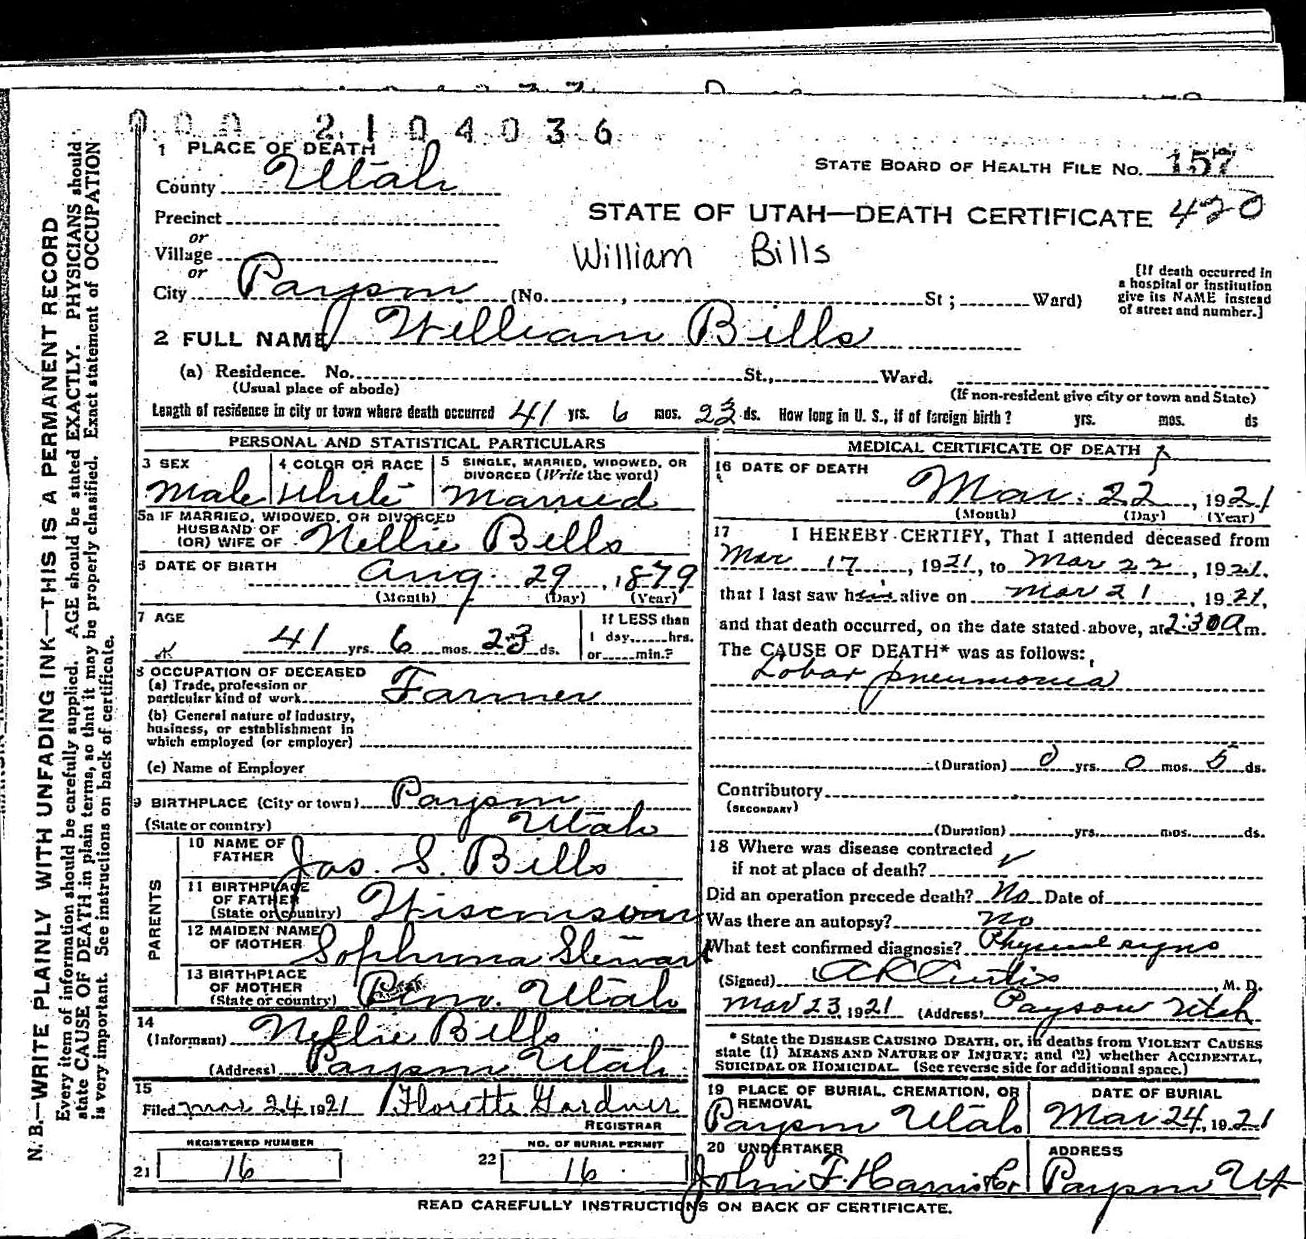 000 2104036
1 PLACE OF DEATH
STATE BOARD OF HEALTH FILE No. 157
County Utah
Precinct
STATE OF UTAH—DEATH CERTIFICATE 420
or
Village
William Bills
or
City Payson (No. , St; Ward)
[If death occurred in
a hospital or institution
give its NAME instead
of street and number.]
2 FULL NAME William Bills
(a) Residence. No. St., Ward.
(Usual place of abode)
(If non-resident give city or town and State)
Length of residence in city or town where death occurred 41 yrs. 6 mos. 23 ds. How long in U. S., if of foreign birth? yrs. mos. ds
PERSONAL AND STATISTICAL PARTICULARS
3 SEX
Male
4 COLOR OR RACE
White
5 SINGLE, MARRIED, WIDOWED, OR
DIVORCED (Write the word)
Married
5a IF MARRIED, WIDOWED, OR DIVORCED
HUSBAND OF
(OR) WIFE OF Nellie Bills
6 DATE OF BIRTH
Aug 29, 1879
(Month) (Day) (Year)
7 AGE
41 yrs. 6 mos. 23 ds.
If LESS than
1 day, hrs.
or min.?
8 OCCUPATION OF DECEASED
(a) Trade, profession or
particular kind of work Farmer
(b) General nature of industry,
business, or establishment in
which employed (or employer)
(c) Name of Employer
9 BIRTHPLACE (City or town) Payson
(State or country) Utah
PARENTS
10 NAME OF
FATHER Jas. S. Bills
11 BIRTHPLACE
OF FATHER
(State or country) Wisconsin
12 MAIDEN NAME
OF MOTHER Stewart
13 BIRTHPLACE
OF MOTHER
(State or country) Utah
14
(Informant) Nellie Bills
(Address) Payson Utah
15
Filed Mar 24 1921 Florette Gardner
REGISTRAR
REGISTERED NUMBER
21 16
NO. OF BURIAL PERMIT
22 16
MEDICAL CERTIFICATE OF DEATH
16 DATE OF DEATH
Mar. 22, 1921
(Month) (Day) (Year)
17 I HEREBY CERTIFY, That I attended deceased from
Mar 17, 1921, to Mar 22, 1921,
that I last saw him alive on Mar 21, 1921,
and that death occurred, on the date stated above, at 2:30 a m.
The CAUSE OF DEATH* was as follows:
Lobar pneumonia
(Duration) 0 yrs. 0 mos. 5 ds.
Contributory
(SECONDARY)
(Duration) yrs. mos. ds.
18 Where was disease contracted
if not at place of death?
Did an operation precede death? No Date of
Was there an autopsy? no
What test confirmed diagnosis? Physical signs
(Signed) A R Curtis, M. D.
Mar 23, 1921 (Address) Payson Utah
* State the DISEASE CAUSING DEATH, or, in deaths from VIOLENT CAUSES
state (1) MEANS AND NATURE OF INJURY; and (2) whether ACCIDENTAL,
SUICIDAL OR HOMICIDAL. (See reverse side for additional space.)
19 PLACE OF BURIAL, CREMATION, OR
REMOVAL
Payson Utah
DATE OF BURIAL
Mar 24, 1921
20 UNDERTAKER
John F.
ADDRESS
Payson Ut
READ CAREFULLY INSTRUCTIONS ON BACK OF CERTIFICATE.
N. B.—WRITE PLAINLY WITH UNFADING INK—THIS IS A PERMANENT RECORD
Every item of information should be carefully supplied. AGE should be stated EXACTLY. PHYSICIANS should
state CAUSE OF DEATH in plain terms, so that it may be properly classified. Exact statement of OCCUPATION
is very important. See instructions on back of certificate.